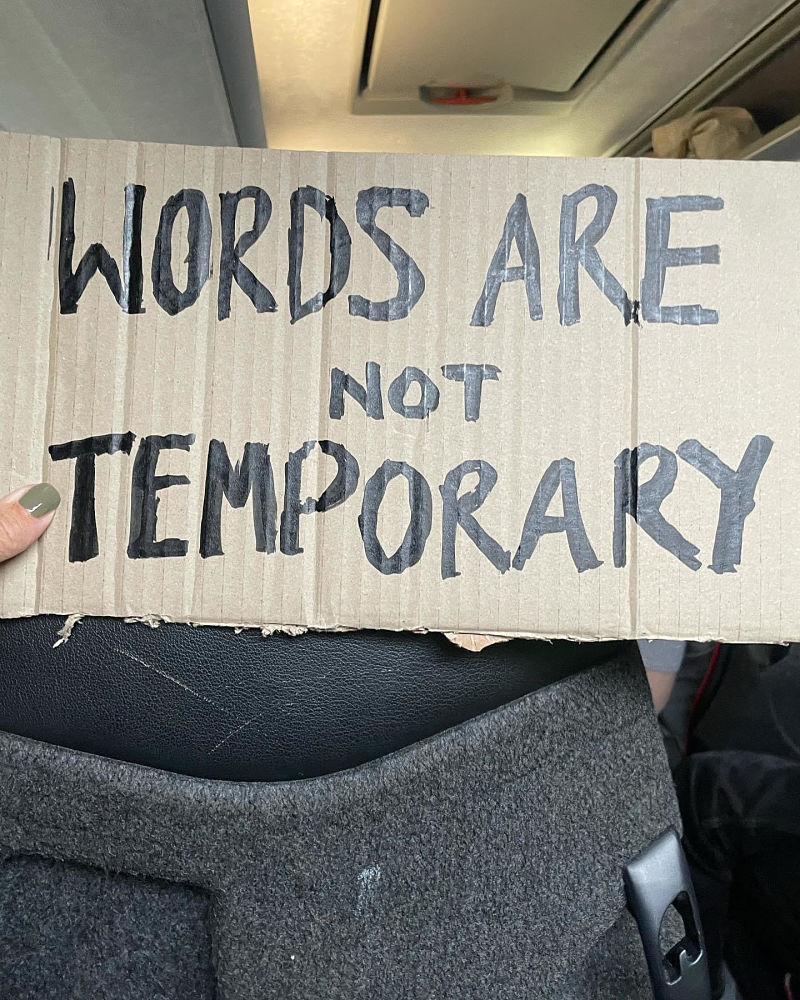 WORDS ARE
NOT
TEMPORARY